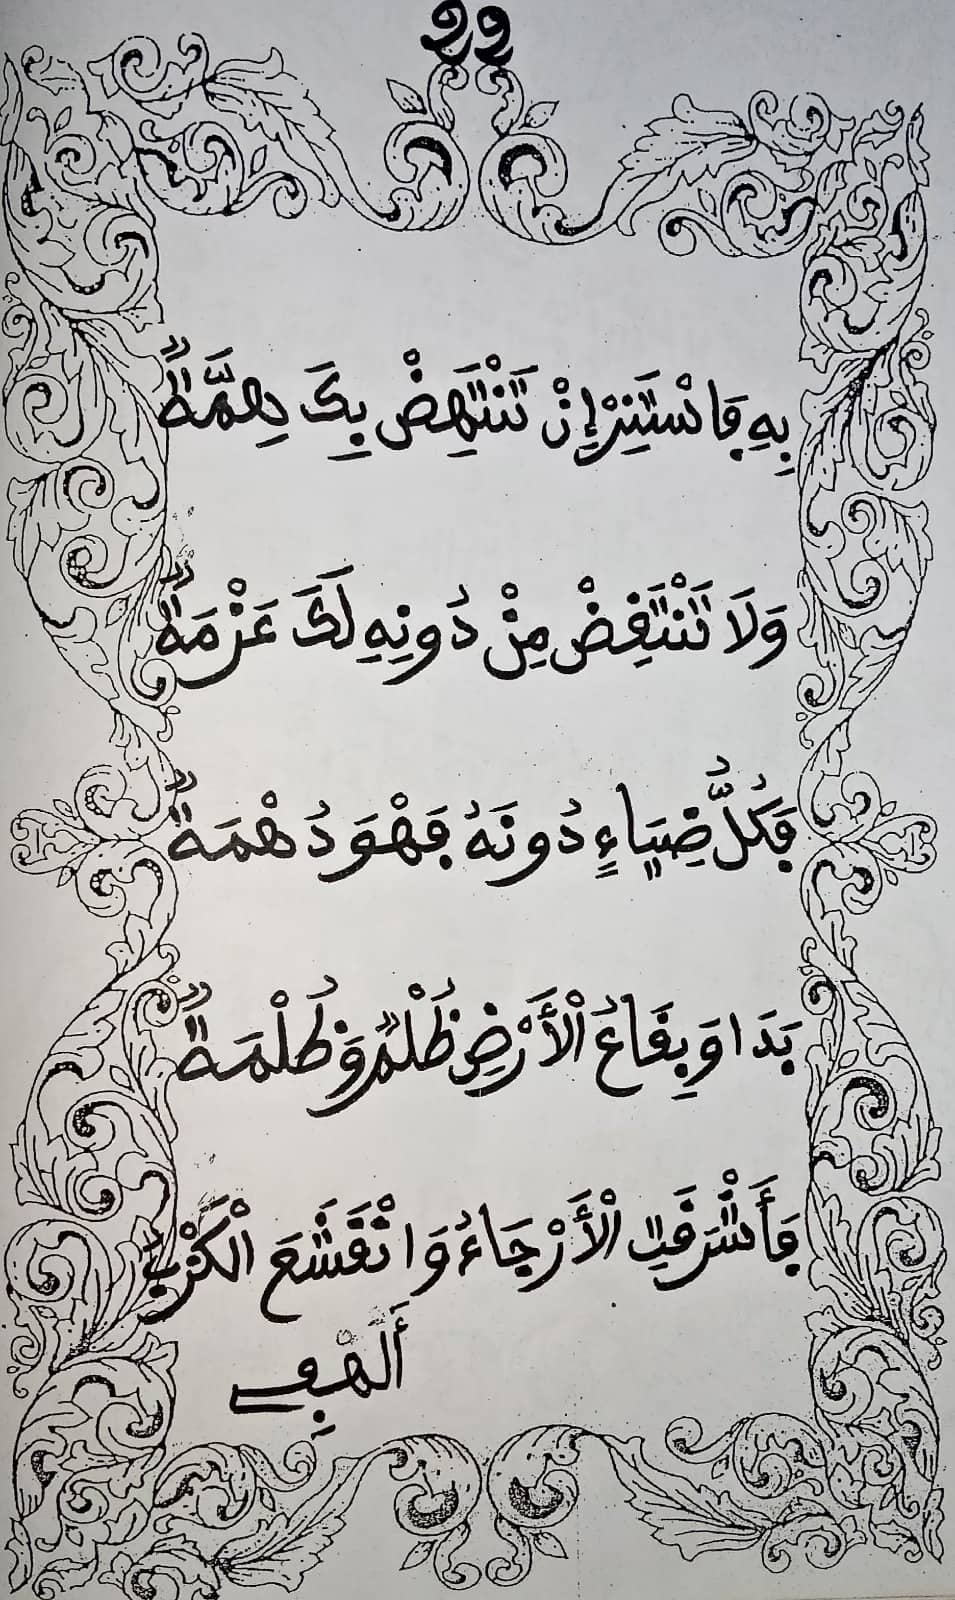 بِهِ فَاسْتَنِرْ إِنْ تَنْتَهِضْ بِكَ هِمَّةٌ
وَلَا تَنْتَفِضْ مِنْ دُونِهِ لَكَ عَزْمَةٌ
فَكُلُّ ضِيَاءٍ دُونَهُ فَهْوَ دُهْمَةٌ
بَدَا وَبِقَاعُ الْأَرْضِ ظُلْمٌ وَظُلْمَةٌ
فَأَشْرَقَتِ الْأَرْجَاءُ وَانْقَشَعَ الْكَرْبُ
أَلَهْفِي